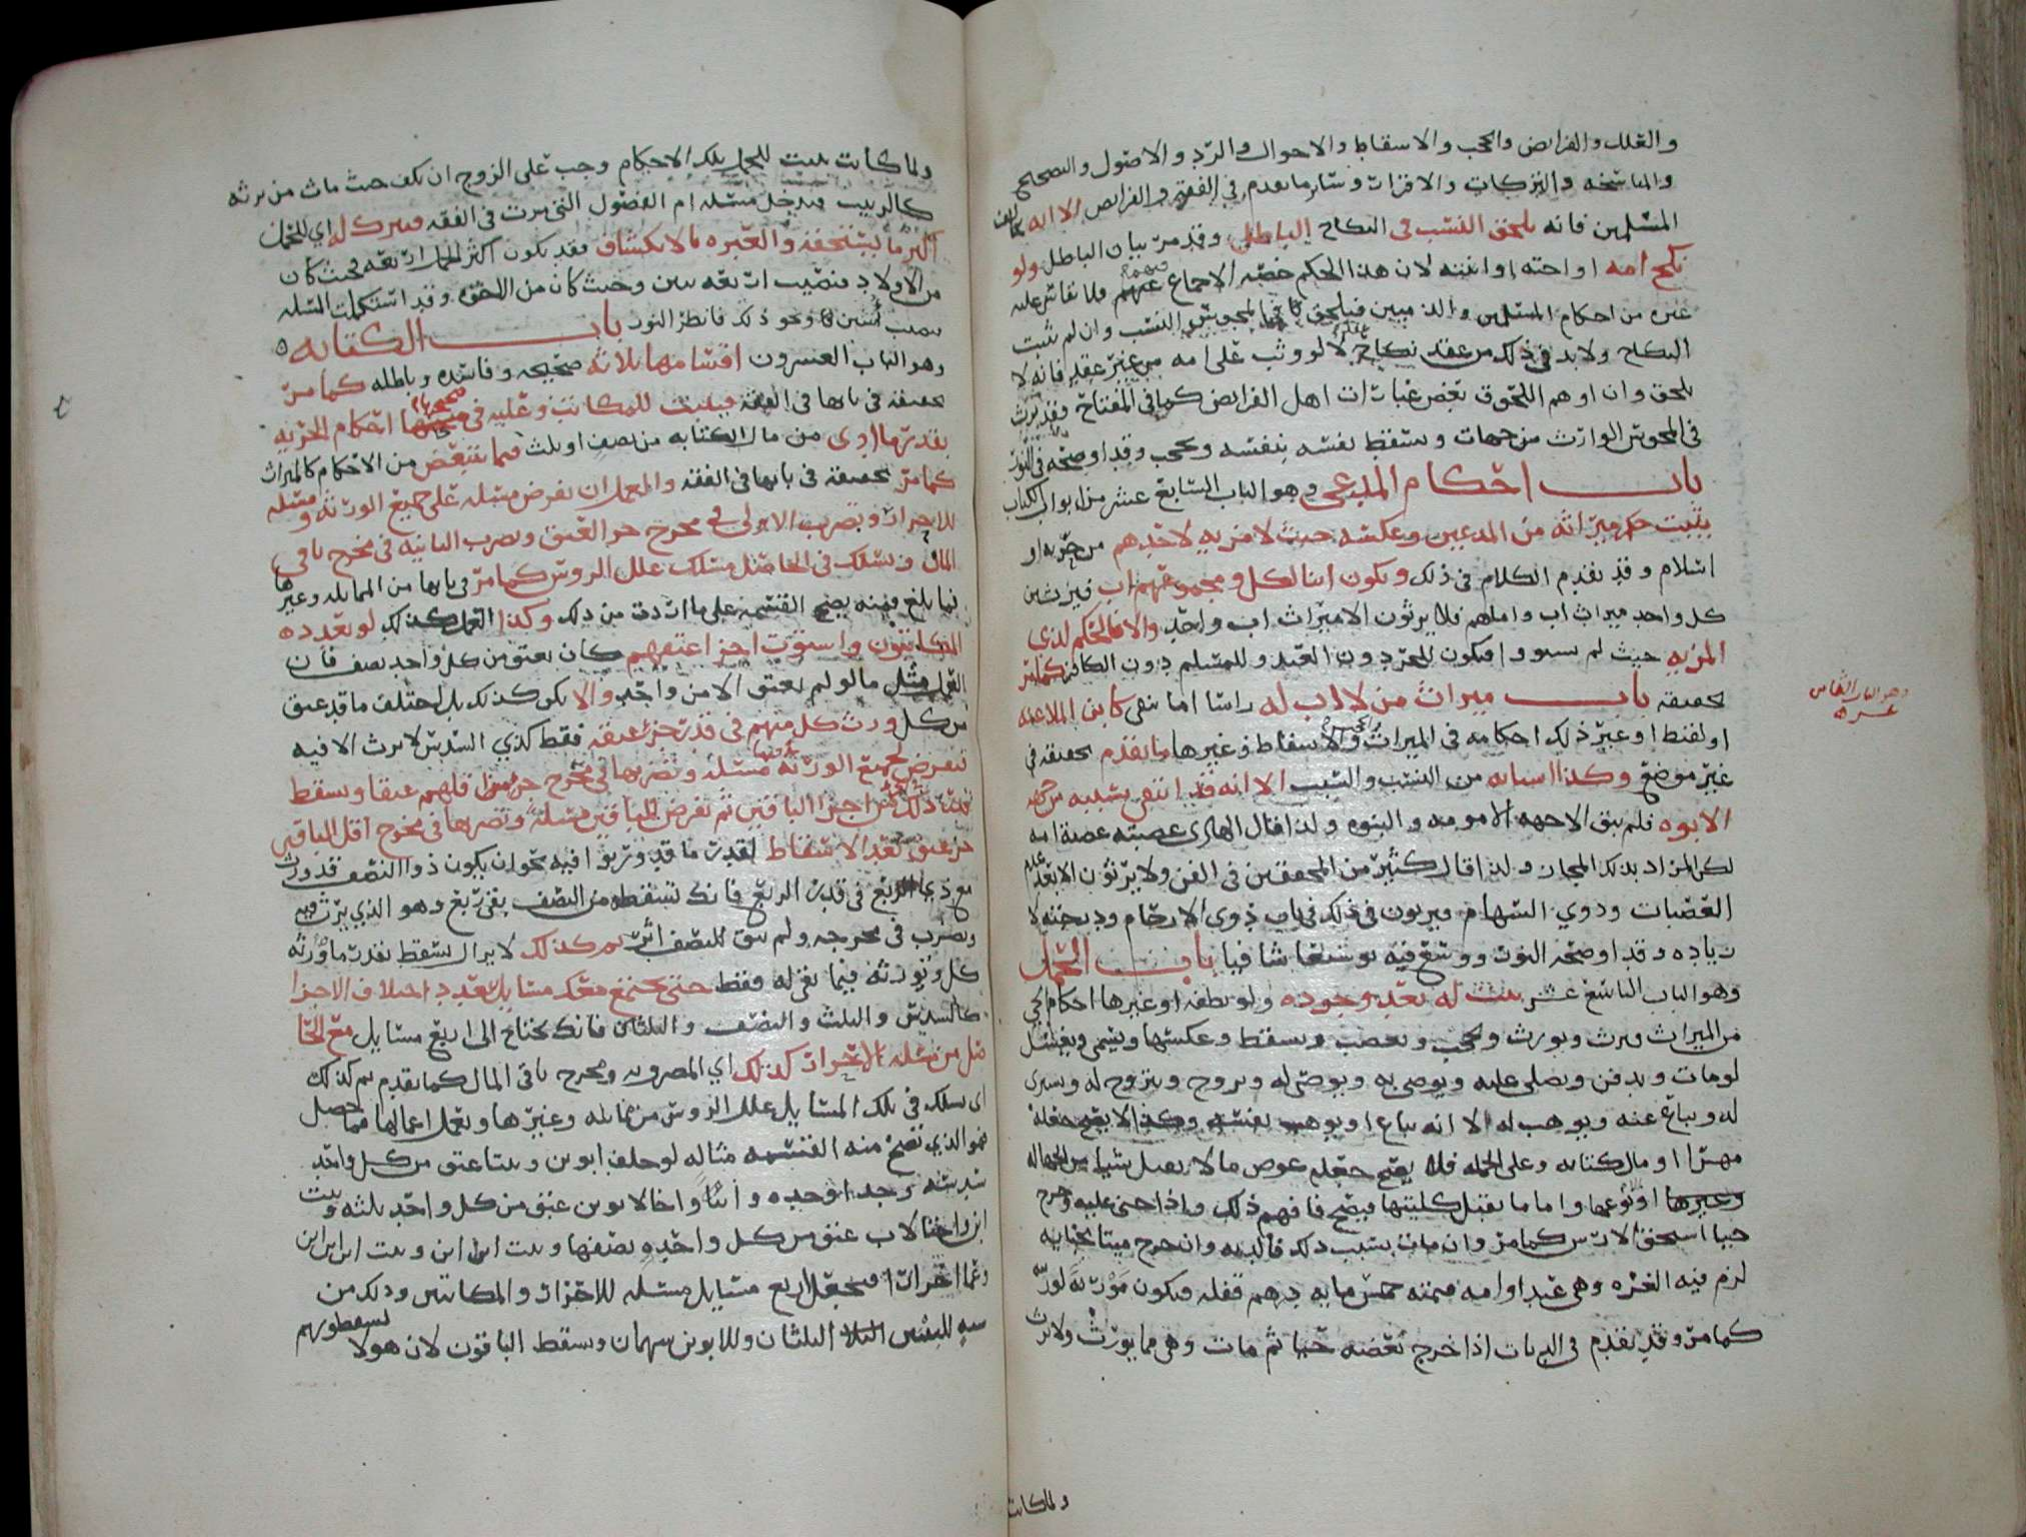 والعلل والفرايض والحجب والاسقاط والاحوال والرد والاصول والتصحيح
والمناسخه والتركات والاقرارات وساير ما تقدم في الفقه والفرايض الا انه يخالف
المسلمين فانه يلحق النسب في النكاح الباطل وقد مر بيان الباطل ولو
نكح امه او اخته او ابنته لان هذا الحكم خصه الاجماع فلا يقاس عليه
غيره من احكام المسلمين والذميين فيلحق المجوسي النسب وان لم يثبت
النكاح ولا بد في ذلك من عقد نكاح لا لو وثب على امه من غير عقد فانه لا
يلحق وان اوهم اللحوق بعض عبارات اهل الفرايض كما في المفتاح وقد يرث
في المجوس الوارث من جهات ويسقط نفسه بنفسه ويحجب وقد اوضحه في النور
باب احكام المدعى وهو الباب السابع عشر من ابواب الكتاب
يثبت حكم ميراثه من المدعيين وعكسه حيث لا مزيه لاحدهم من حريه او
اسلام وقد تقدم الكلام في ذلك ويكون ابنا لكل ومجموعهم اب فيرث من
كل واحد ميراث اب واما هم فلا يرثون الا ميراث اب واحد والا فالحكم لذي
المزيه حيث لم يستووا فيكون للحر دون العبد وللمسلم دون الكافر كما مر
تحقيقه باب ميراث من لا اب له راسا اما بنفي كابن الملاعنه
وهو الباب الثامن عشر
او لقط او غير ذلك احكامه في الميراث والاسقاط وغيرها ما تقدم تحقيقه في
غير موضع وكذا اسبابه من النسب والسبب الا انه قد انتفى نسبه من جهه
الابوه فلم يبق الا جهه الامومه والبنوه ولذا قال الهادي عصبته عصبة امه
لكن المراد بذلك المجاز ولذا قال كثير من المحققين في الفن ولا يرثون الا بعد عدم
العصبات وذوي السهام فيرثون في ذلك في باب ذوي الارحام وذ بحثه لا
زياده وقد اوضحه النور ووسع فيه توسعا شافيا باب الحمل
وهو الباب التاسع عشر يثبت له بعد وجوده ولو نطفه او غيرها احكام الحي
من الميراث فيرث ويورث ويحجب ويعصب ويسقط وعكسها ويسمى ويغسل
لو مات ويدفن ويصلى عليه ويوصى به ويوصى له ويزوج ويتزوج له ويشترى
له ويباع عنه ويوهب له الا انه يباع او يوهب نفسه وكذا لا يصح جعله
مهرا او مال كتابه وعلى الجمله فلا يصح جعله عوض ما لا يقبل شيا من الجهاله
وغيرها او نوعها واما ما يقبل كليتها فيصح فافهم ذلك واذا جني عليه وخرج
حيا استحق الارش كما مر وان مات بسبب ذلك فالديه وان خرج ميتا بجنايه
لزم فيه الغره وهي عبد او امه قيمته خمس مايه درهم قفله فيكون مورثة لورثته
كما مر وقد تقدم في الديات اذا خرج بعضه حيا ثم مات وهي مما يورث ولا يرث
ولما كانت
ولما كانت يثبت للحمل تلك الاحكام وجب على الزوج ان يكف حيث مات من يرثه
كالربيب فيدخل مسئله ام الفضول التي مرت في الفقه ويترك له اي للحمل
اكثر ما يستحقه والعبره بالانكشاف فقد يكون اكثر الحمل اربعه فحيث كان
من الاولاد فنصيب اربعه بنين وحيث كان من الاخوه وقد استكملت المسئله
نصيب اثنين ونحو ذلك فانظر النور باب الكتابه
وهو الباب العشرون اقسامها ثلاثه صحيحه وفاسده وباطله كما مر
تحقيقه في بابها في الفقه فيثبت للمكاتب وعليه في صحيحها احكام الحريه
بقدر ما ادى من مال الكتابه من نصف او ثلث فيما يتبعض من الاحكام كالميراث
كما مر تحقيقه في بابها في الفقه والعمل ان تفرض مسئله على جميع الورثه ومسئله
للاحرار وتضرب الاولى في مخرج جزء العتق وتضرب الثانيه في مخرج باقي
المال وتسلك في الحاصل مسلك علل الروس كما مر في بابها من المماثله وغيرها
فما بلغ فمنه يصح القسمه على ما اردت من ذلك وكذا العمل كذلك لو تعدده
المكاتبون واستوت اجزا عتقهم كان يعتق من كل واحد نصف فان
العمل مثل ما لو لم يعتق الا من واحد والا يكن كذلك بل اختلف ما قد عتق
من كل ورث كل منهم في قدر جزء عتقه فقط كذي السدس لا يرث الا فيه
فتفرض لجميع الورثه مسئله وتضربها في مخرج جزء اقلهم عتقا ويسقط
بعد ذلك من اجزا الباقين ثم تفرض للباقين مسئلة وتضربها في مخرج اقل الباقين
جزء عتق بعد الاسقاط لقدر ما قد ورثوا فيه نحو ان يكون ذو النصف قد ورث
مع ذي الربع في قدر الربع فانك تسقطه من النصف بقي ربع وهو الذي يرث فيه
ويضرب في مخرجه ولم يبق للنصف اثر ثم كذلك لا يزال يسقط بقدر ما ورثه
كل وتورثه فيما بقي له فقط حتى تجتمع معك مسايل بتعدد اختلاف الاجزا
كالسدس والثلث والنصف والثلثان فانك تحتاج الى اربع مسايل مع الحا
صل من مسئله الاحرار كذلك اي المضروبه في مخرج باقي المال كما تقدم ثم كذلك
اي تسلك في تلك المسايل علل الروس من مماثله وغيرها وتعمل اعمالها فما حصل
فهو الذي تصح منه القسمه مثاله لو خلف ابوين وبنتا عتق من كل واحد
سدسه وجدا وجده واختا واخا لابوين عتق من كل واحد ثلثه وبنت
ابن واختا لاب عتق من كل واحده نصفها وبنت ابن ابن وبنت ابن ابن ابن
وعما احرارا فتجعل اربع مسايل مسئله للاحرار والمكاتبين وذلك من
سته للبنتين الثلثان وللابوين سهمان ويسقط الباقون لان هولا يسقطونهم